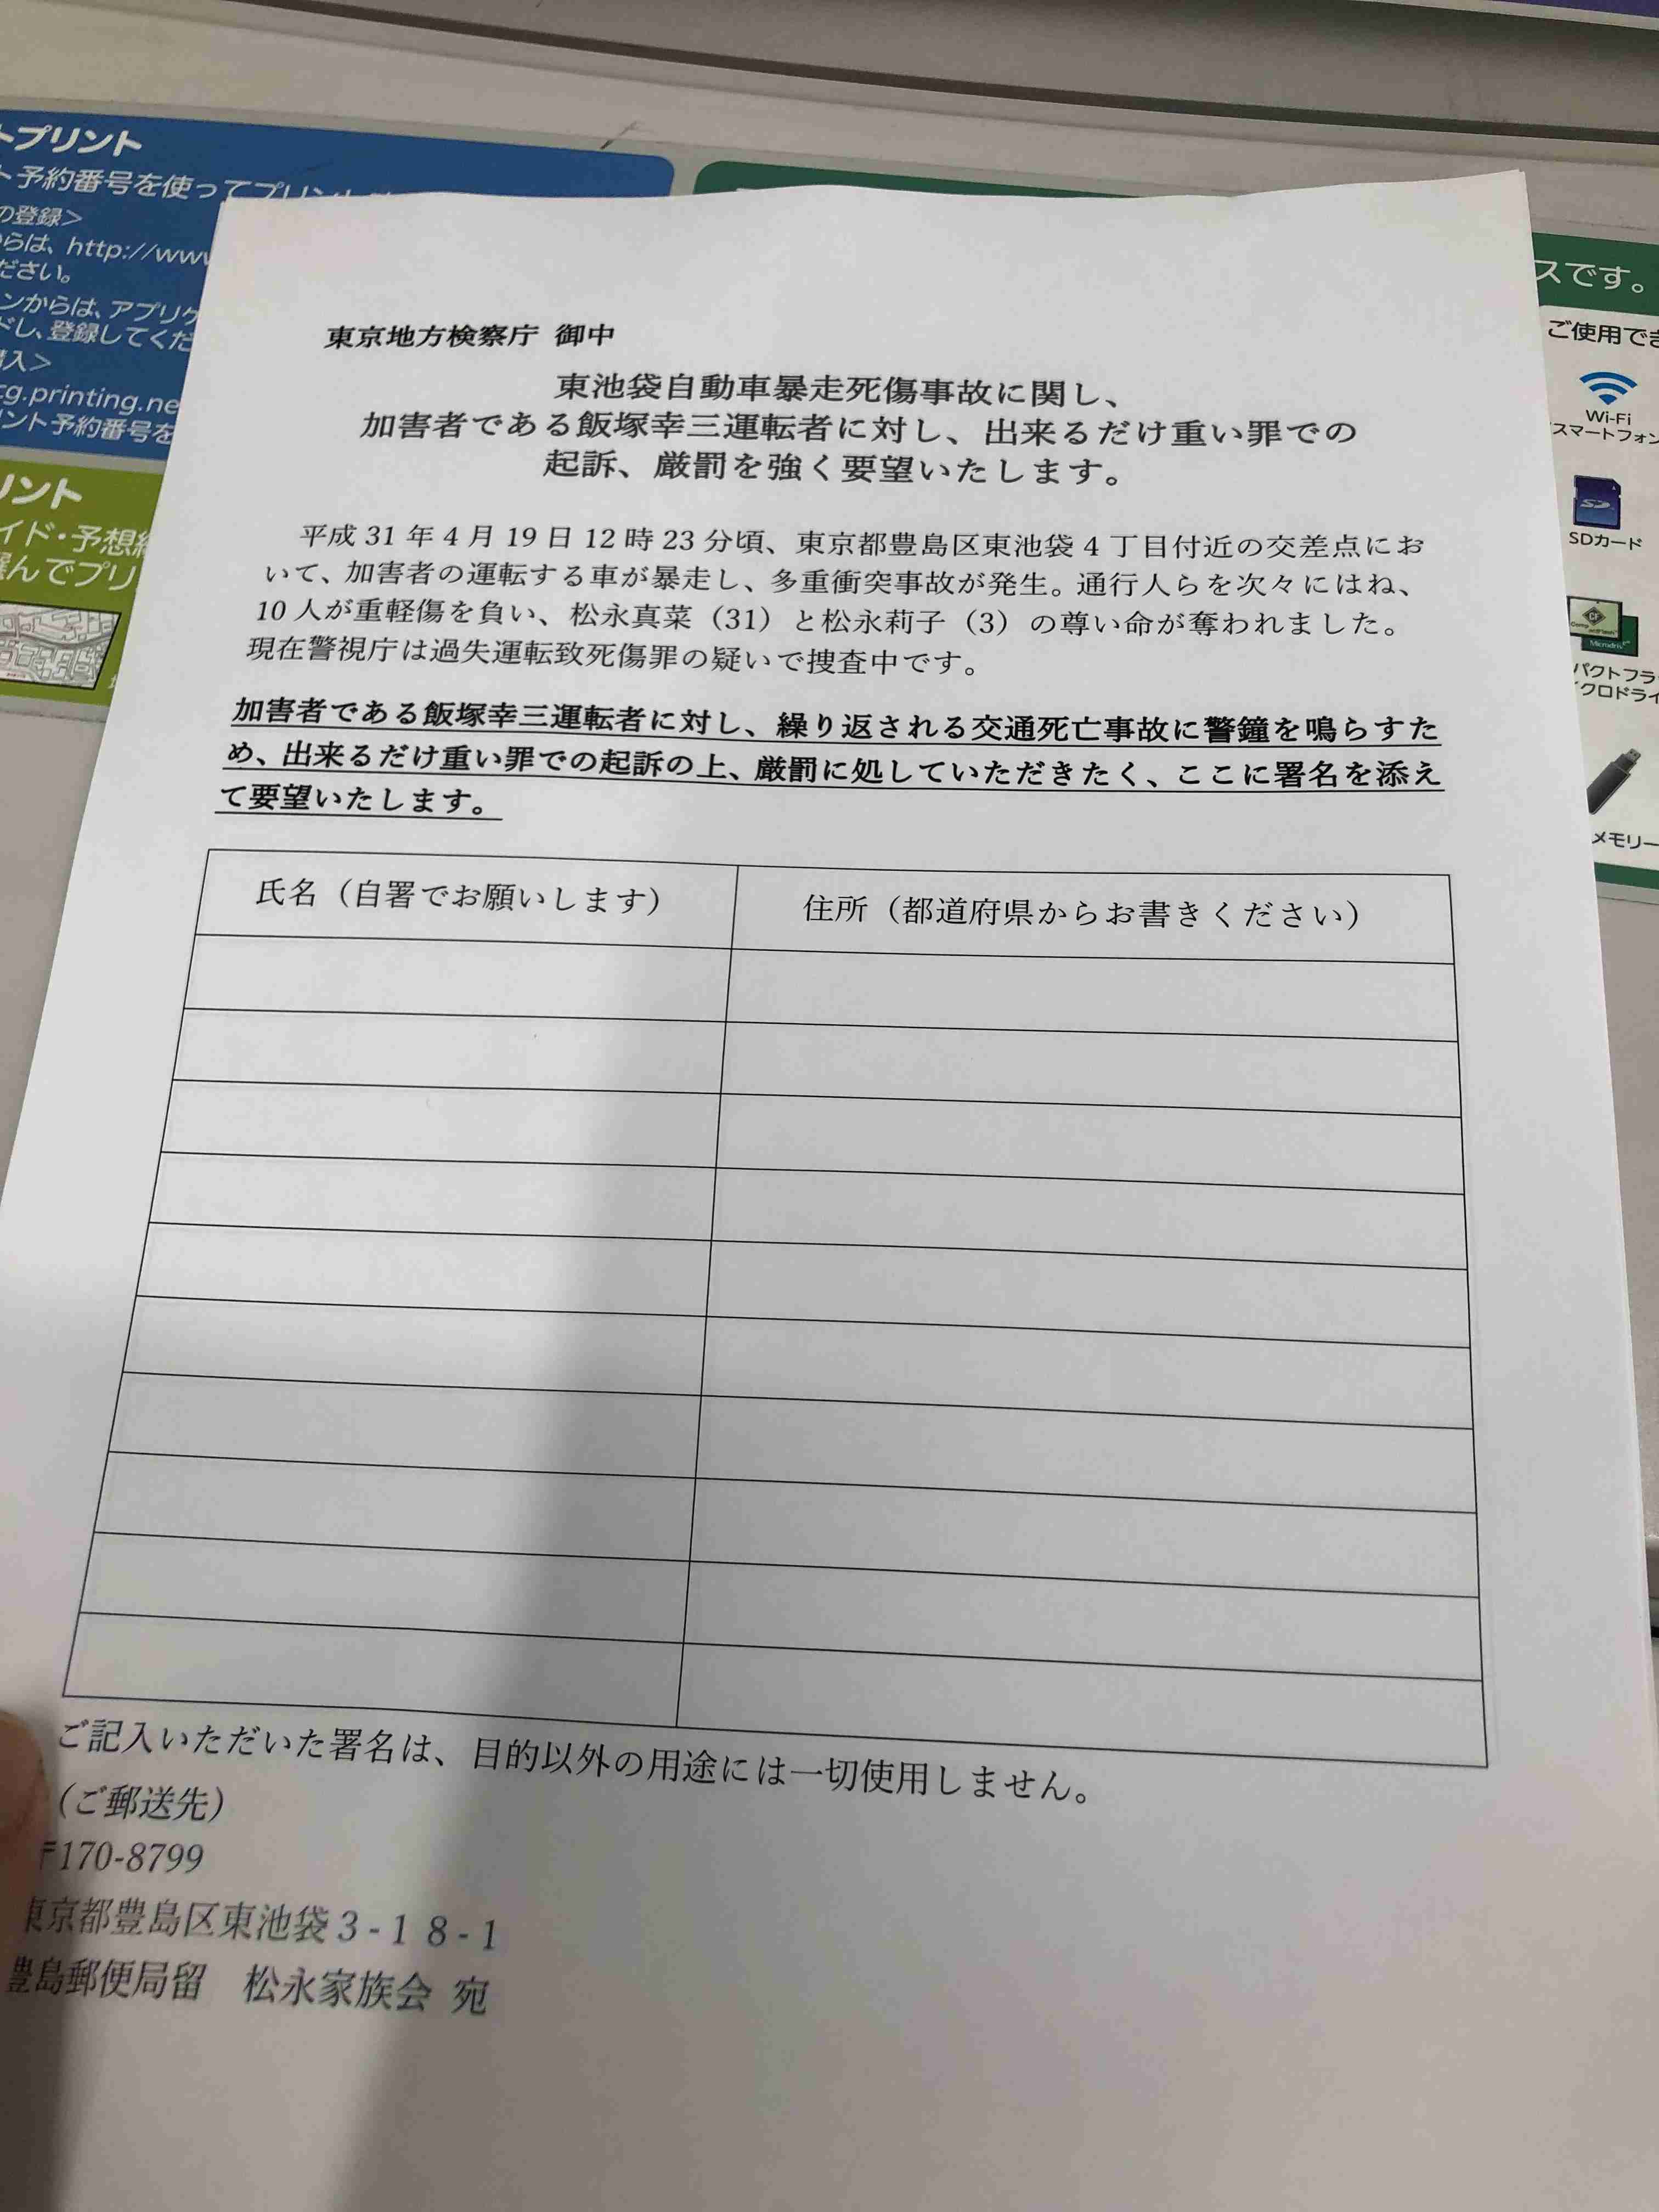 トプリント
ト予約番号を使ってプリント
の登録＞
らは、http://www
ださい。
ンからは、アプリケ
ドし、登録してくだ
購入＞
cg.printing.ne
ント予約番号を
リント
イド・予想紙
選んでプリ
スです。
ご使用でき
Wi-Fi
スマートフォン
SD
SDカード
CF
Microdrive
パクトフラ
イクロドライ
メモリー
東京地方検察庁 御中
東池袋自動車暴走死傷事故に関し、
加害者である飯塚幸三運転者に対し、出来るだけ重い罪での
起訴、厳罰を強く要望いたします。
平成 31 年 4 月 19 日 12 時 23 分頃、東京都豊島区東池袋 4 丁目付近の交差点にお
いて、加害者の運転する車が暴走し、多重衝突事故が発生。通行人らを次々にはね、
10 人が重軽傷を負い、松永真菜（31）と松永莉子（3）の尊い命が奪われました。
現在警視庁は過失運転致死傷罪の疑いで捜査中です。
加害者である飯塚幸三運転者に対し、繰り返される交通死亡事故に警鐘を鳴らすた
め、出来るだけ重い罪での起訴の上、厳罰に処していただきたく、ここに署名を添え
て要望いたします。
氏名（自署でお願いします） 住所（都道府県からお書きください）
ご記入いただいた署名は、目的以外の用途には一切使用しません。
（ご郵送先）
〒170-8799
東京都豊島区東池袋３-１８-１
豊島郵便局留　松永家族会 宛